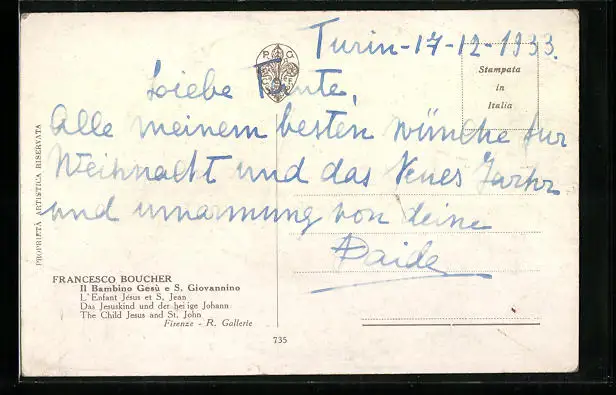 Turin-17-12-1933.
Liebe Tante,
Alle meinem besten wünche fur
Weihnacht und das Neues Jarhr
und umarmung von deine
Daide
Stampata
in
Italia
PROPRIETÀ ARTISTICA RISERVATA
FRANCESCO BOUCHER
Il Bambino Gesù e S. Giovannino
L'Enfant Jésus et S. Jean
Das Jesuskind und der heilige Johann
The Child Jesus and St. John
Firenze - R. Gallerie
735